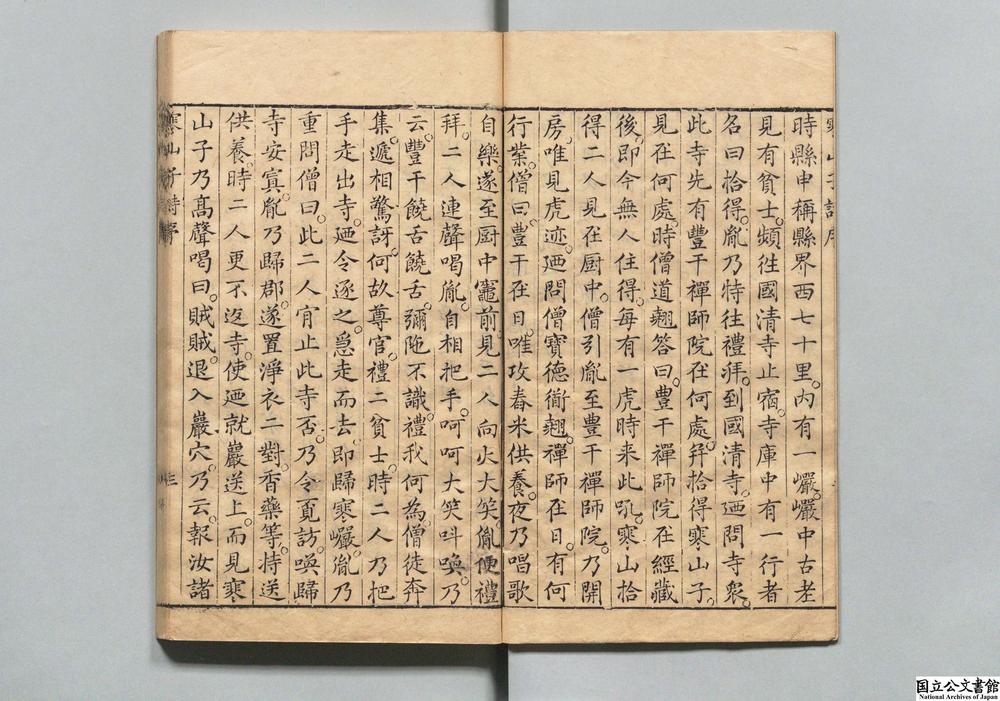 寒山子詩序
時縣申稱縣界西七十里。内有一巖。巖中古老
見有貧士。頻徃國清寺止宿。寺庫中有一行者
名曰拾得。胤乃特往禮拜。到國清寺。廼問寺衆。
此寺先有豐干禪師院在何處。并拾得寒山子。
見在何處。時僧道翹答曰。豐干禪師院在經藏
後。即今無人住得。每有一虎時来此吼。寒山拾
得二人見在厨中。僧引胤至豐干禪師院。乃開
房。唯見虎迹。廼問僧寶德衟翹。禪師在日。有何
行業。僧曰。豐干在日。唯攻舂米供養。夜乃唱歌
自樂。遂至厨中竈前。見二人向火大笑。胤便禮
拜。二人連聲喝胤。自相把手。呵呵大笑呌喚。乃
云。豐干饒舌饒舌。彌陁不識。禮我何為。僧徒奔
集。遞相驚訝。何故尊官。禮二貧士。時二人乃把
手走出寺。廼令逐之。急走而去。即歸寒巖。胤乃
重問僧曰。此二人肎止此寺否。乃令覔訪。喚歸
寺安寘。胤乃歸郡。遂置淨衣二對。香藥等。持送
供養。時二人更不返寺。使廼就巖送上。而見寒
山子乃髙聲喝曰。賊賊。退入巖穴。乃云。報汝諸
寒山子詩序
三
国立公文書館
National Archives of Japan